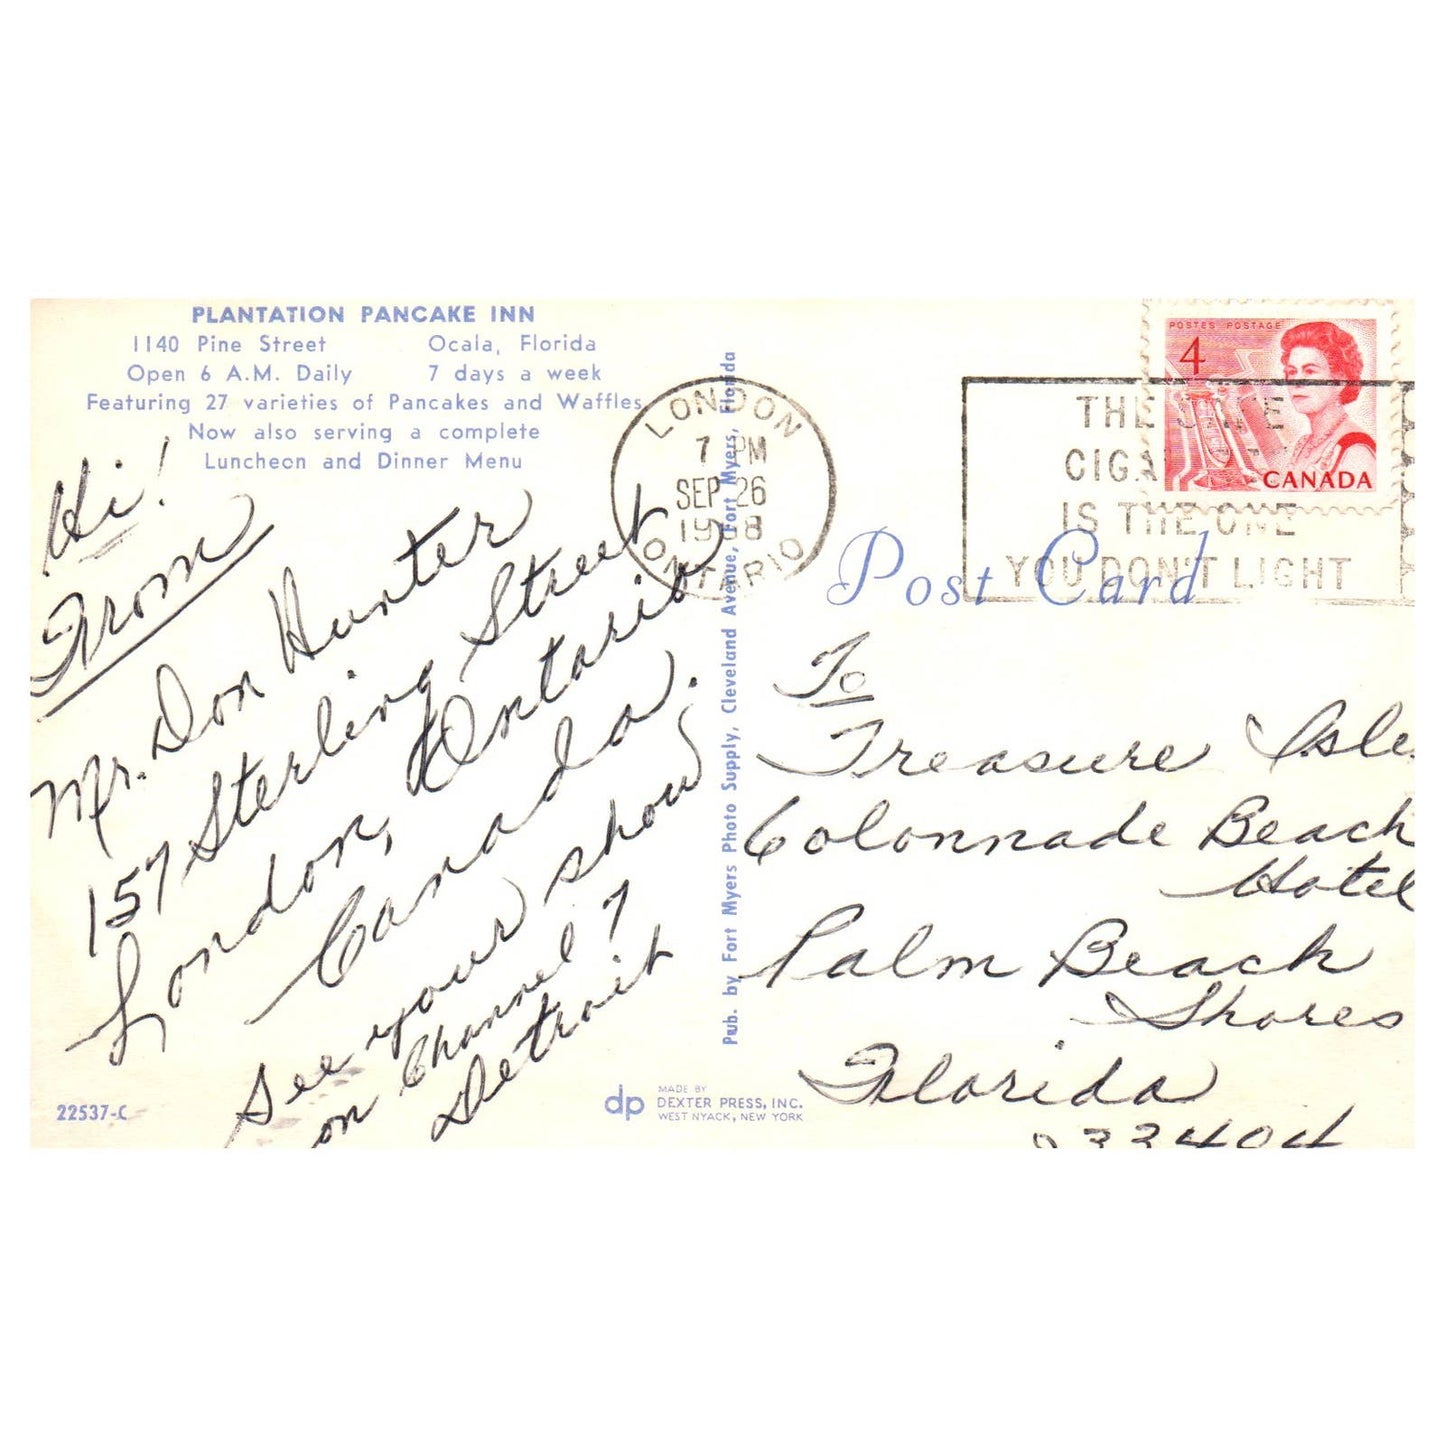 PLANTATION PANCAKE INN
1140 Pine Street Ocala, Florida
Open 6 A.M. Daily 7 days a week
Featuring 27 varieties of Pancakes and Waffles
Now also serving a complete
Luncheon and Dinner Menu
Hi!
From
Mr. Don Hunter
157 Sterling Street
London, Ontario
Canada.
See your show
on Channel 7
Detroit
22537-C
Pub. by Fort Myers Photo Supply, Cleveland Avenue, Fort Myers, Florida
dp
MADE BY
DEXTER PRESS, INC.
WEST NYACK, NEW YORK
LONDON
7 PM
SEP 26
1968
ONTARIO
THE
IS THE ONE
YOU DON'T LIGHT
POSTES POSTAGE
4
CANADA
Post Card
To
Treasure Isle
Colonnade Beach
Hotel
Palm Beach
Shores
Florida
33404